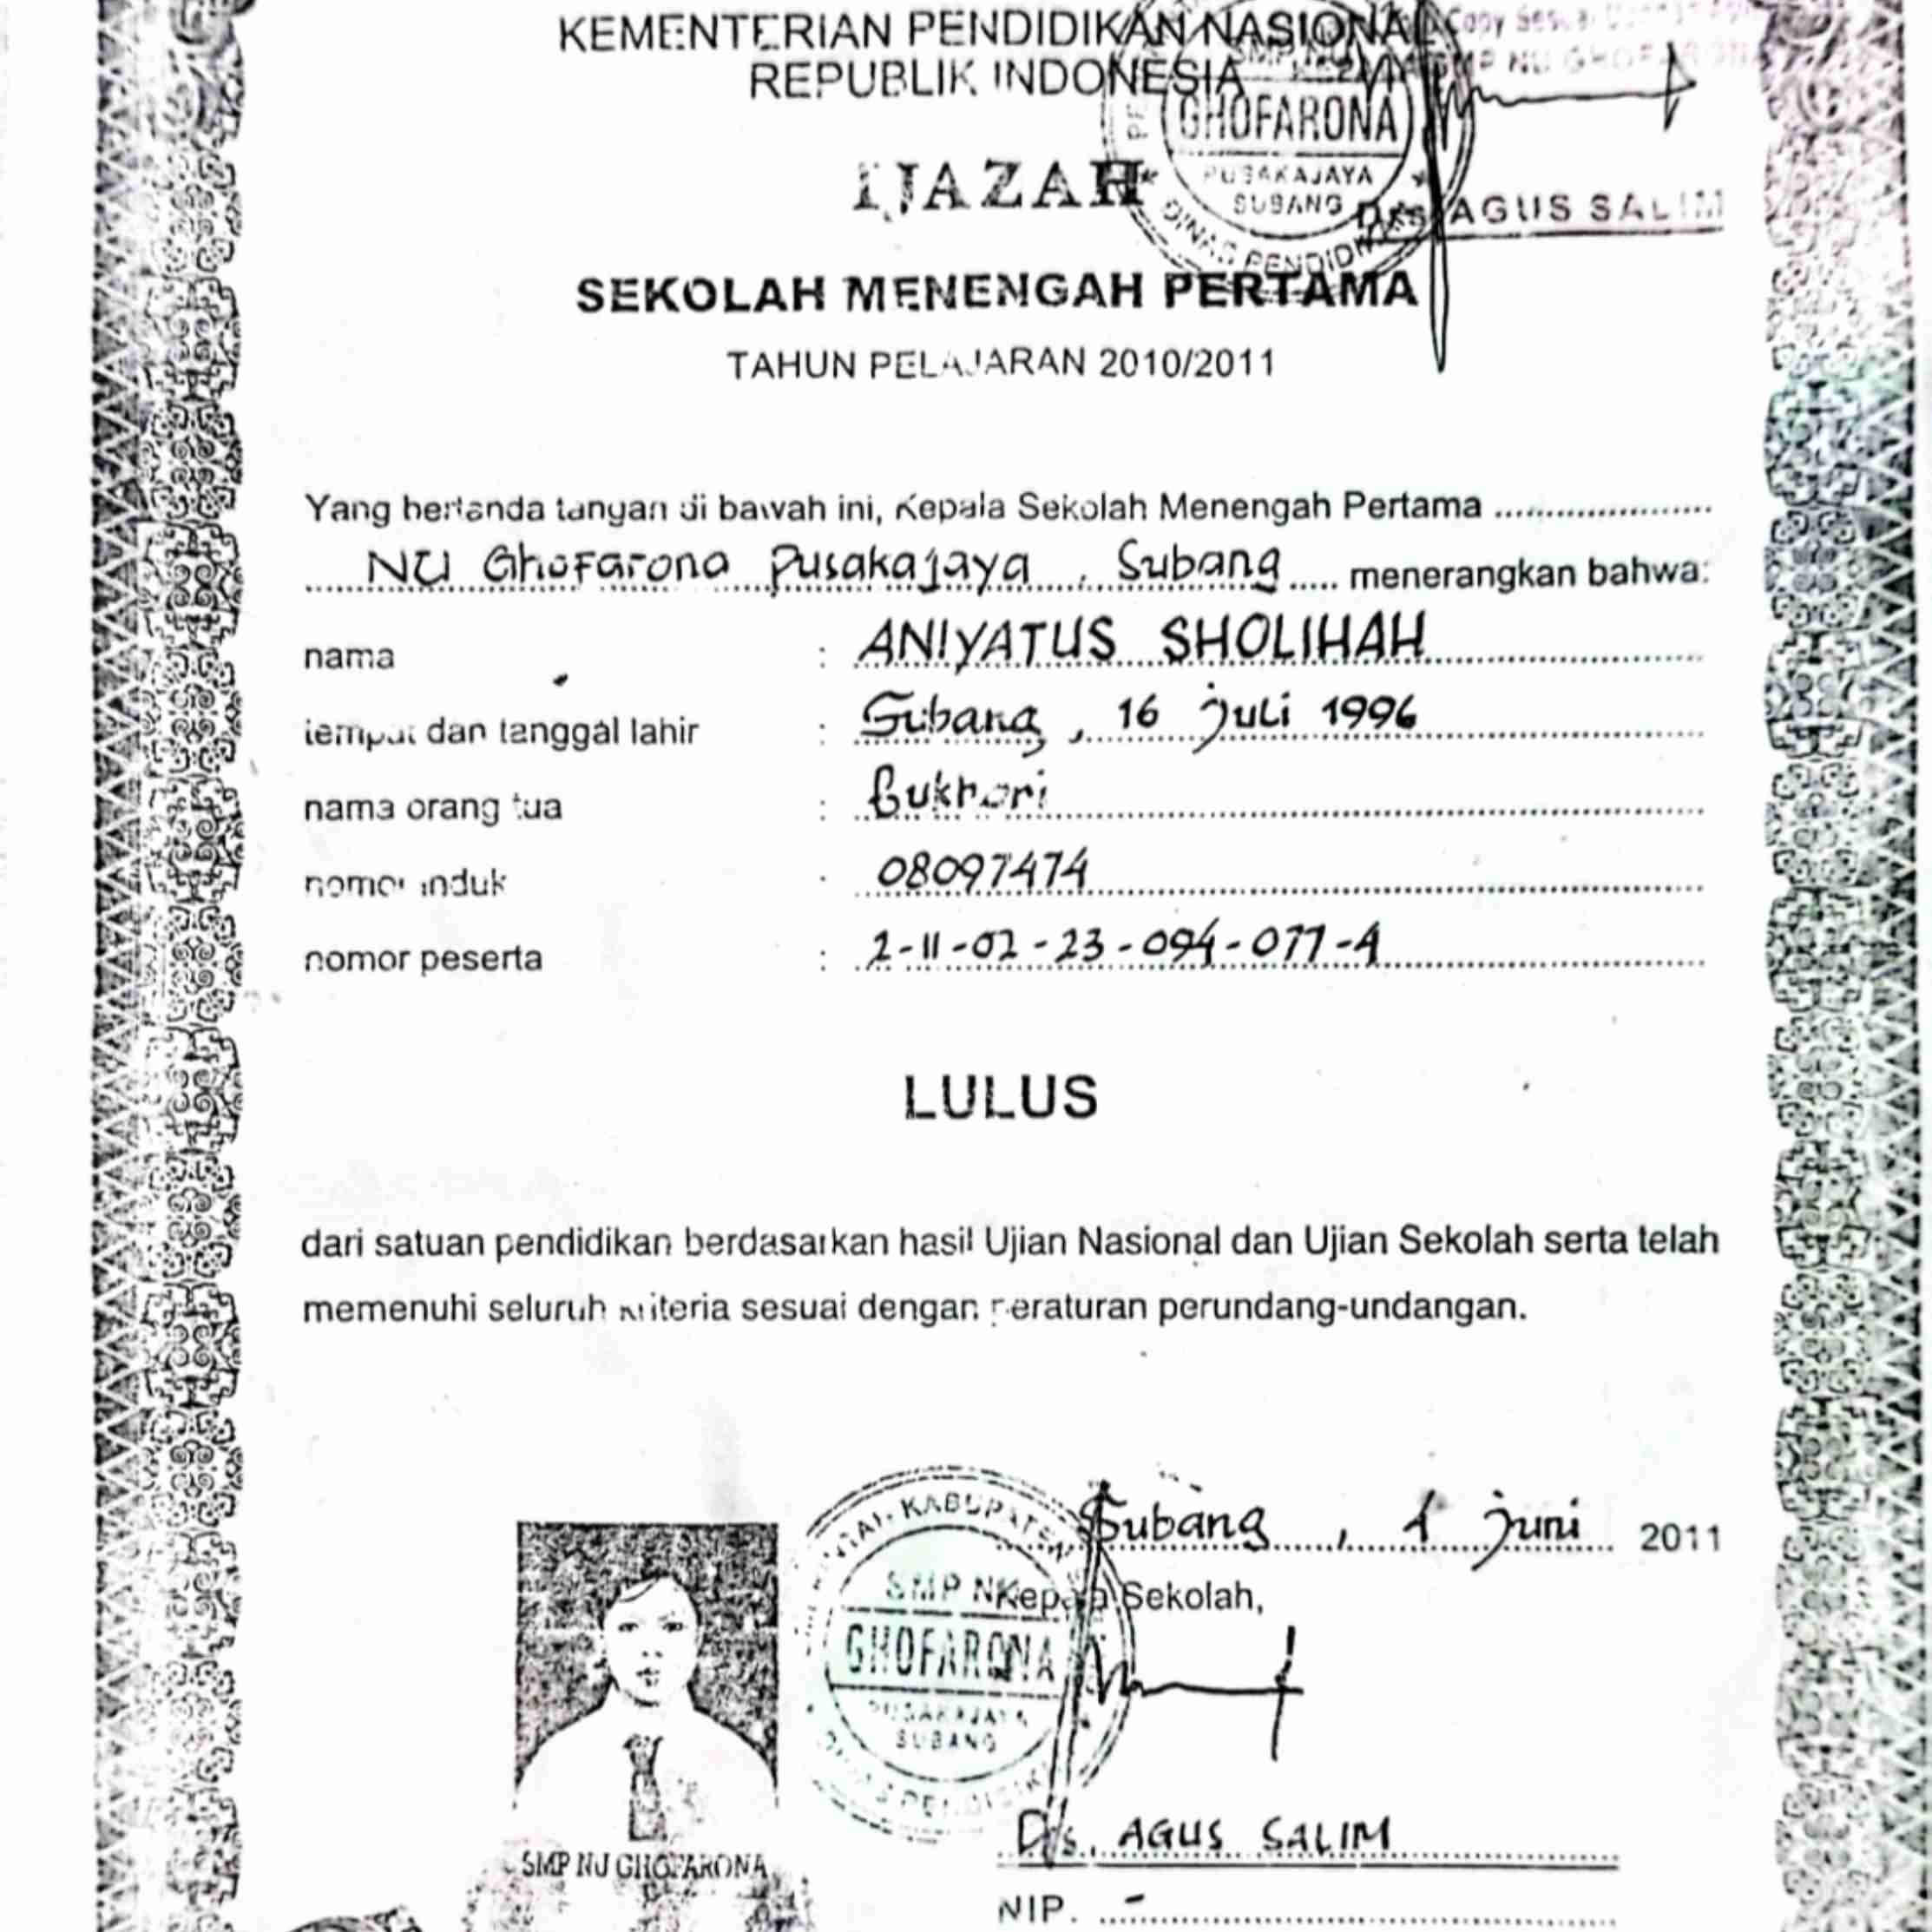 KEMENTERIAN PENDIDIKAN NASIONAL
REPUBLIK INDONESIA
Copy
SMP NU GHOFARONA
SMP NU
GHOFARONA
PUSAKAJAYA
SUBANG
DINAS PENDIDIKAN
Drs AGUS SALIM
IJAZAH
SEKOLAH MENENGAH PERTAMA
TAHUN PELAJARAN 2010/2011
Yang bertanda tangan di bawah ini, Kepala Sekolah Menengah Pertama
NU Ghofarona Pusakajaya, Subang menerangkan bahwa:
nama : ANIYATUS SHOLIHAH
tempat dan tanggal lahir : Subang, 16 Juli 1996
nama orang tua : Bukhori
nomor induk : 08097474
nomor peserta : 2-11-02-23-094-077-4
LULUS
dari satuan pendidikan berdasarkan hasil Ujian Nasional dan Ujian Sekolah serta telah
memenuhi seluruh kriteria sesuai dengan peraturan perundang-undangan.
Subang, 4 Juni 2011
Kepala Sekolah,
KABUPATEN
SMP N
GHOFARONA
PUSAKAJAYA
SUBANG
Drs. AGUS SALIM
SMP NU GHOFARONA
NIP. -